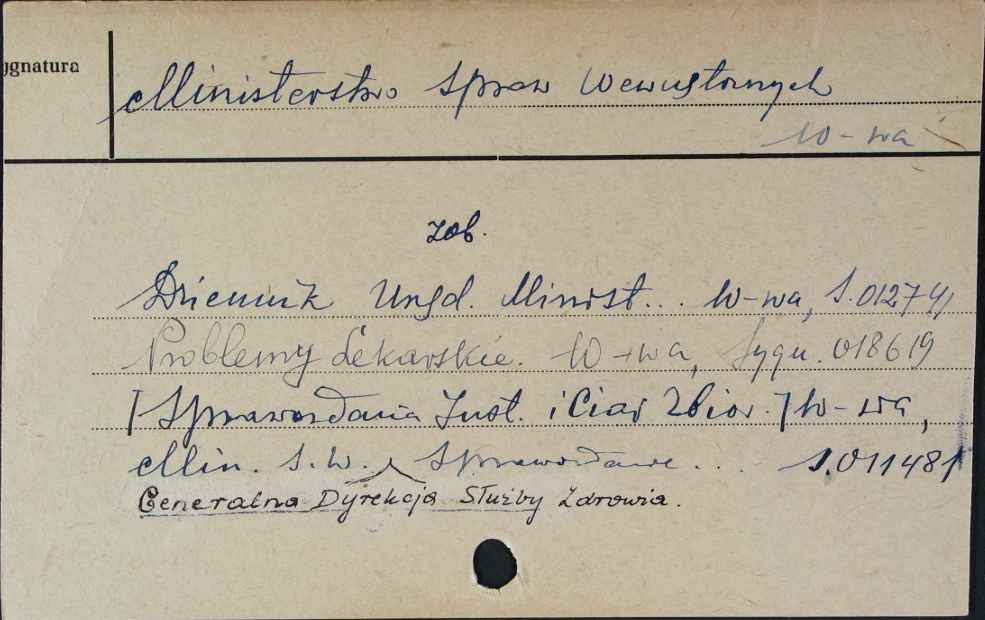 ygnatura
Ministerstwo Spraw Wewnętrznych
W-wa
zob.
Dziennik Urzęd. Minist... W-wa, S.01274
Problemy Lekarskie. W-wa, Sygn. 018619
[Sprawozdania Inst. i Ciał Zbior.] W-wa,
Min. S.W. Sprawozdanie... S.011481
Generalna Dyrekcja Służby Zdrowia.